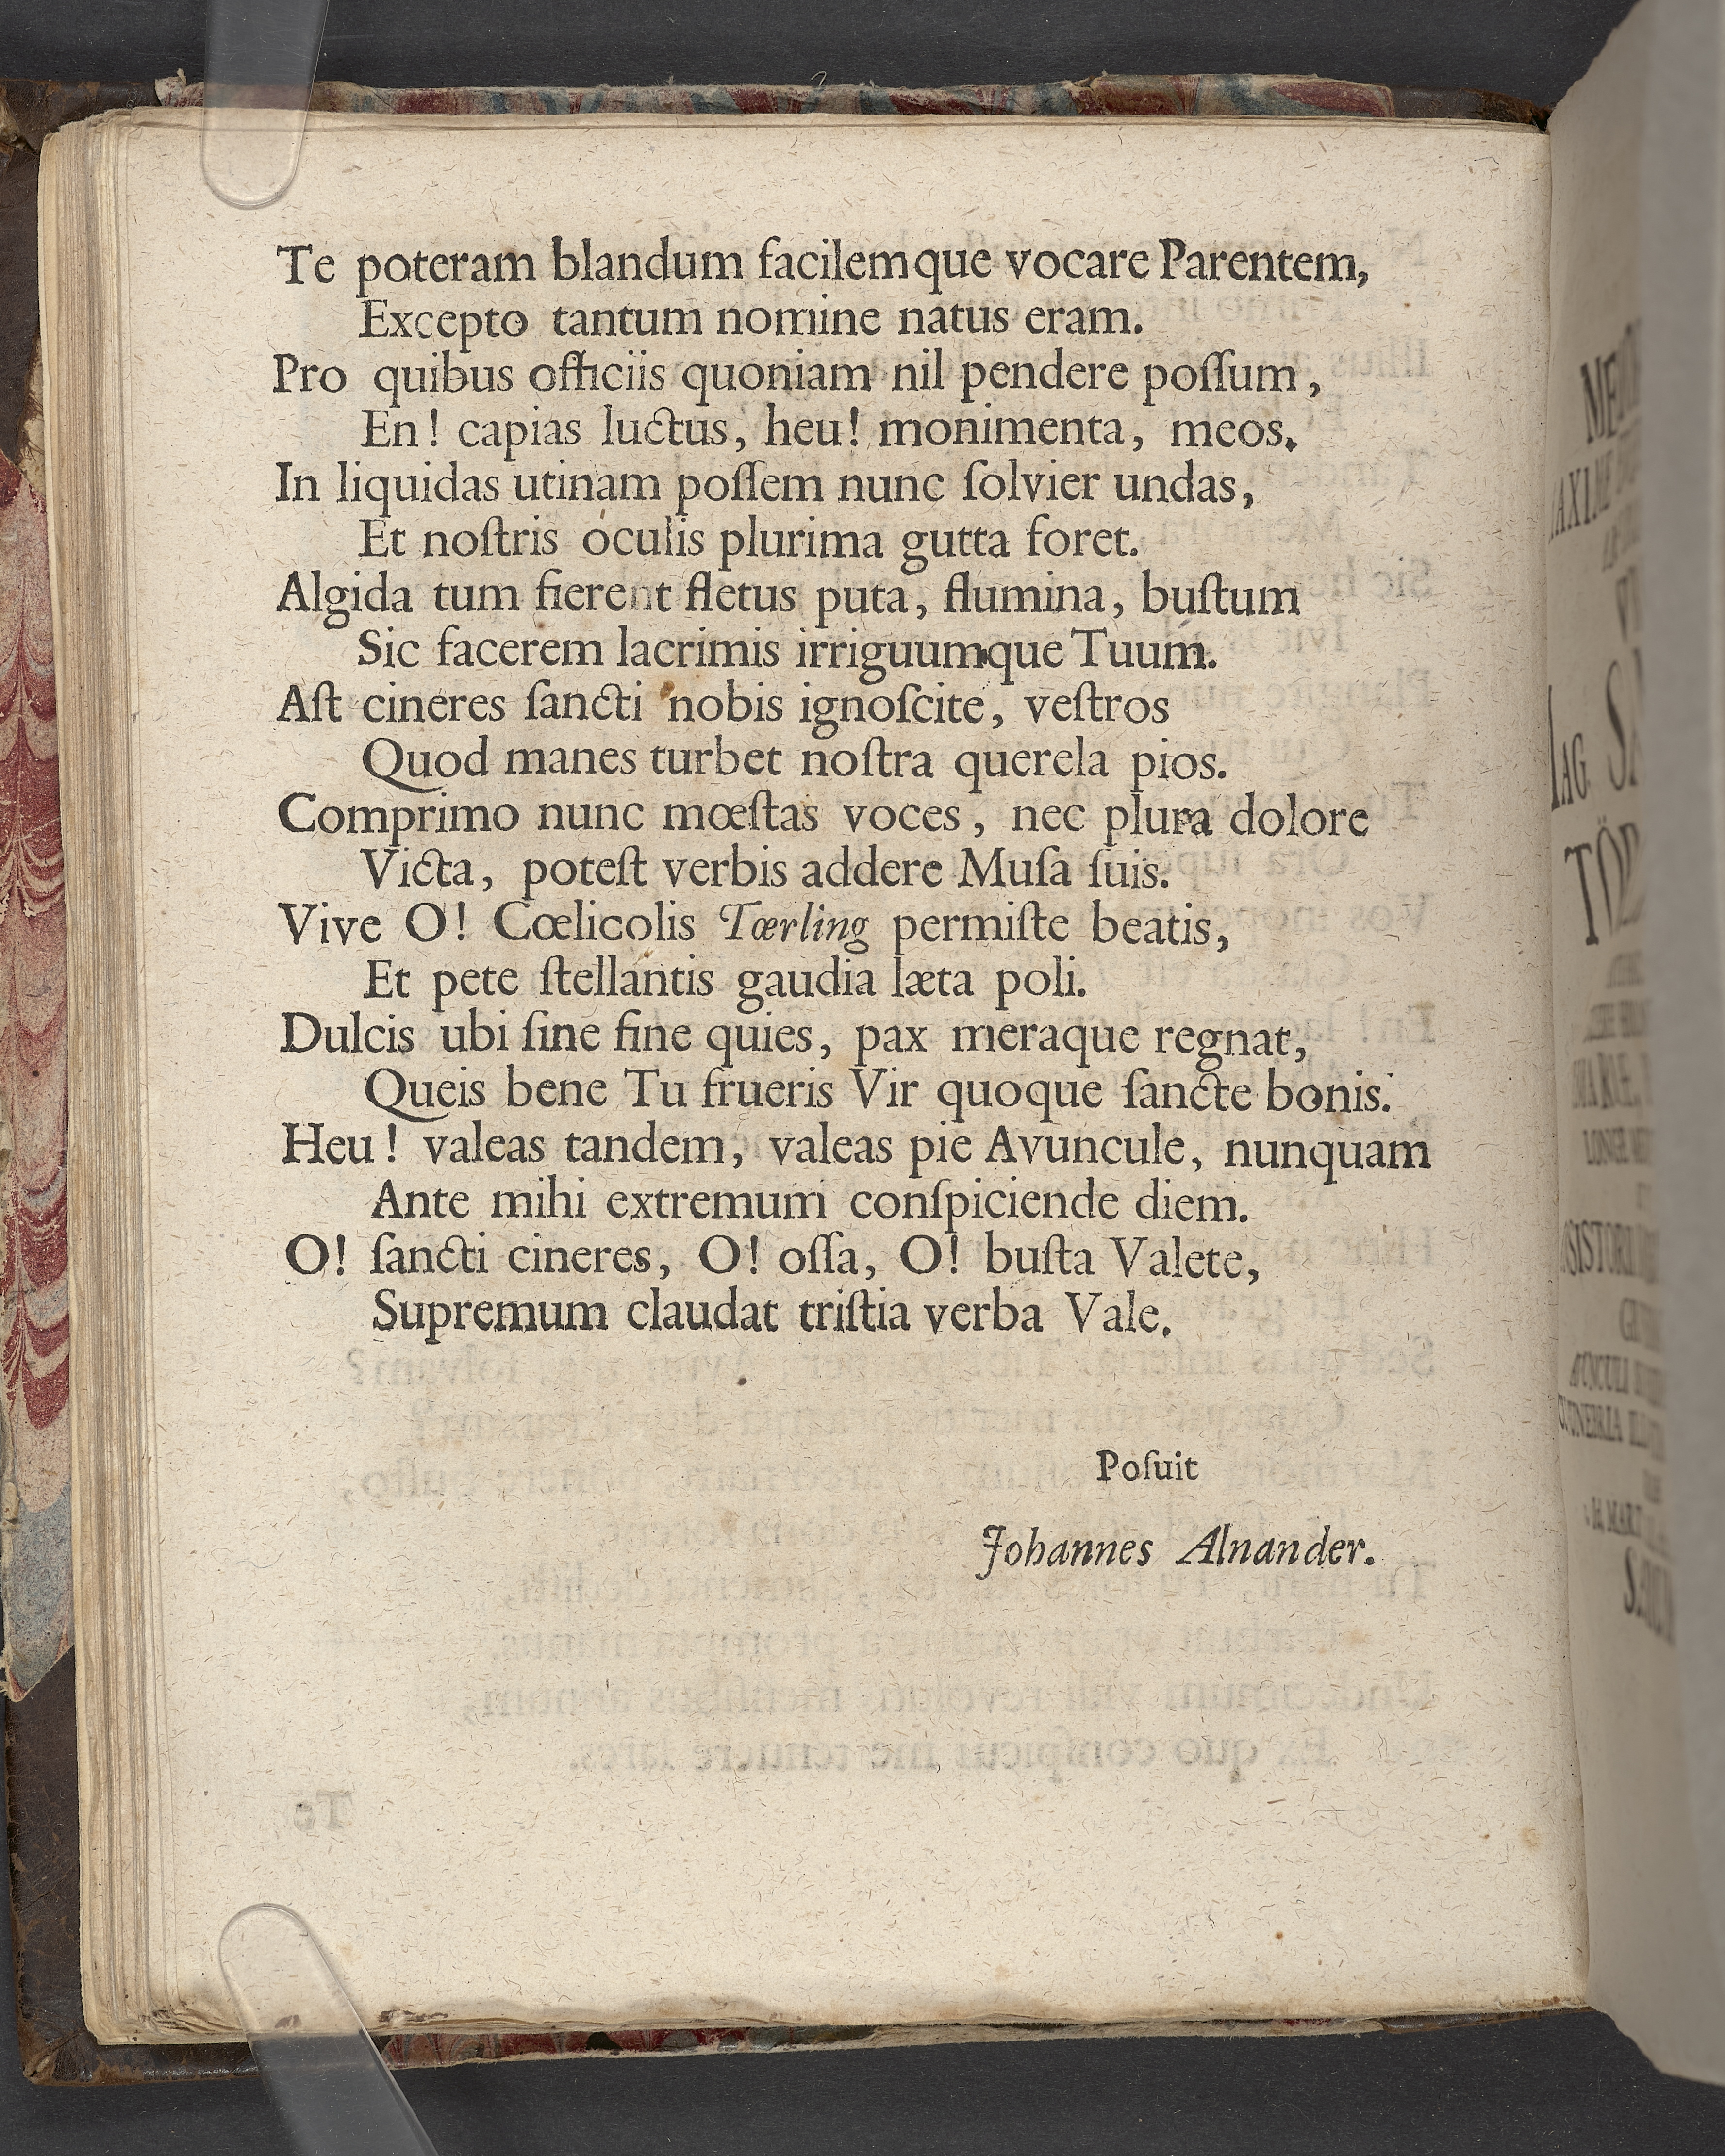 Te poteram blandum facilemque vocare Parentem,
Excepto tantum nomine natus eram.
Pro quibus officiis quoniam nil pendere poſſum,
En! capias luctus, heu! monimenta, meos.
In liquidas utinam poſſem nunc ſolvier undas,
Et noſtris oculis plurima gutta foret.
Algida tum fierent fletus puta, flumina, buſtum
Sic facerem lacrimis irriguumque Tuum.
Aſt cineres ſancti nobis ignoſcite, veſtros
Quod manes turbet noſtra querela pios.
Comprimo nunc mœſtas voces, nec plura dolore
Victa, poteſt verbis addere Muſa ſuis.
Vive O! Cœlicolis Tœrling permiſte beatis,
Et pete ſtellantis gaudia læta poli.
Dulcis ubi ſine fine quies, pax meraque regnat,
Queis bene Tu frueris Vir quoque ſancte bonis.
Heu! valeas tandem, valeas pie Avuncule, nunquam
Ante mihi extremum conſpiciende diem.
O! ſancti cineres, O! oſſa, O! buſta Valete,
Supremum claudat triſtia verba Vale.
Poſuit
Johannes Alnander.